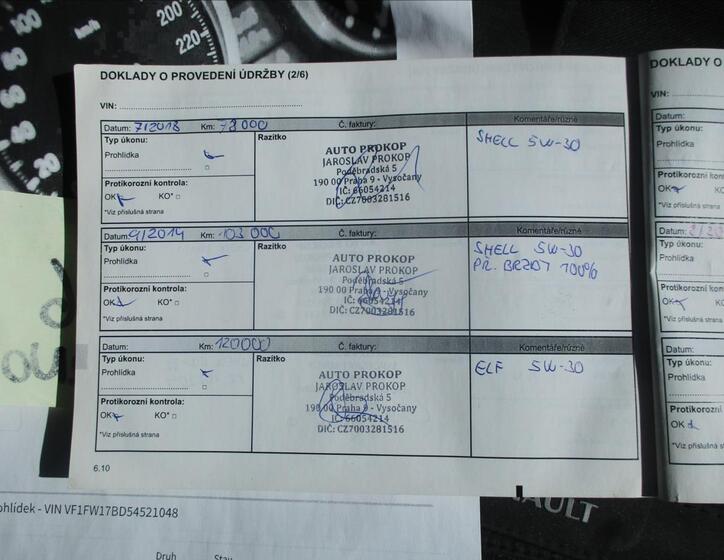 200
220
km/h
DOKLADY O PROVEDENÍ ÚDRŽBY (2/6)
VIN:
Datum: 7/2013 Km: 78 000 Č. faktury: Komentáře/různé
Typ úkonu: Razítko
Prohlídka
Protikorozní kontrola:
OK KO*
*Viz příslušná strana
AUTO PROKOP
JAROSLAV PROKOP
Poděbradská 5
190 00 Praha 9 - Vysočany
IČ: 66054214
DIČ: CZ7003281516
SHELL 5W-30
Datum: 9/2014 Km: 103 000 Č. faktury: Komentáře/různé
Typ úkonu: Razítko
Prohlídka
Protikorozní kontrola:
OK KO*
*Viz příslušná strana
AUTO PROKOP
JAROSLAV PROKOP
Poděbradská 5
190 00 Praha 9 - Vysočany
IČ: 66054214
DIČ: CZ7003281516
SHELL 5W-30
PŘ. BRZDY 100%
Datum: Km: 120000 Č. faktury: Komentáře/různé
Typ úkonu: Razítko
Prohlídka
Protikorozní kontrola:
OK KO*
*Viz příslušná strana
AUTO PROKOP
JAROSLAV PROKOP
Poděbradská 5
190 00 Praha 9 - Vysočany
IČ: 66054214
DIČ: CZ7003281516
ELF 5W-30
6.10
DOKLADY O
VIN:
Datum:
Typ úkonu:
Prohlídka
Protikorozní kon
OK
*Viz příslušná st
Datum:
Typ úkonu:
Prohlídka
Protikorozní kont
OK
*Viz příslušná stra
Datum:
Typ úkonu:
Prohlídka
Protikorozní
OK
*Viz příslušná
ohlídek - VIN VF1FW17BD54521048
Druh Stav
AULT